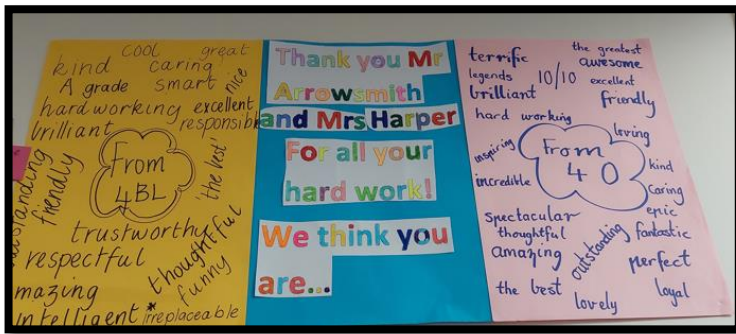 cool great
kind caring
A grade smart nice
hardworking excellent
brilliant responsible
From
4BL
friendly
'the best'
trustworthy
respectful
thoughtful
funny
intelligent irreplaceable
Thank you Mr
Arrowsmith
and Mrs Harper
For all your
hard work!
We think you
are...
terrific the greatest
awesome
legends 10/10 excellent
brilliant friendly
hard working
loving
inspiring
From
4O
kind
incredible
caring
spectacular epic
thoughtful fantastic
amazing outstanding
perfect
the best lovely loyal